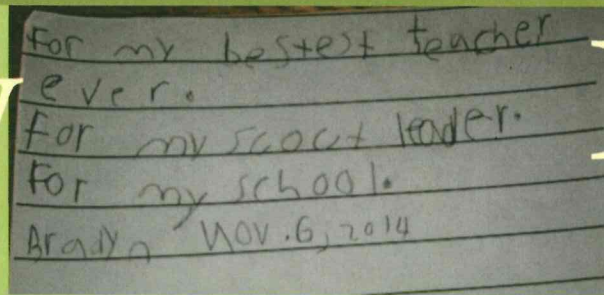 For my bestest teacher
ever.
For my scout leader.
For my school.
Aradyn Nov. 6, 2014